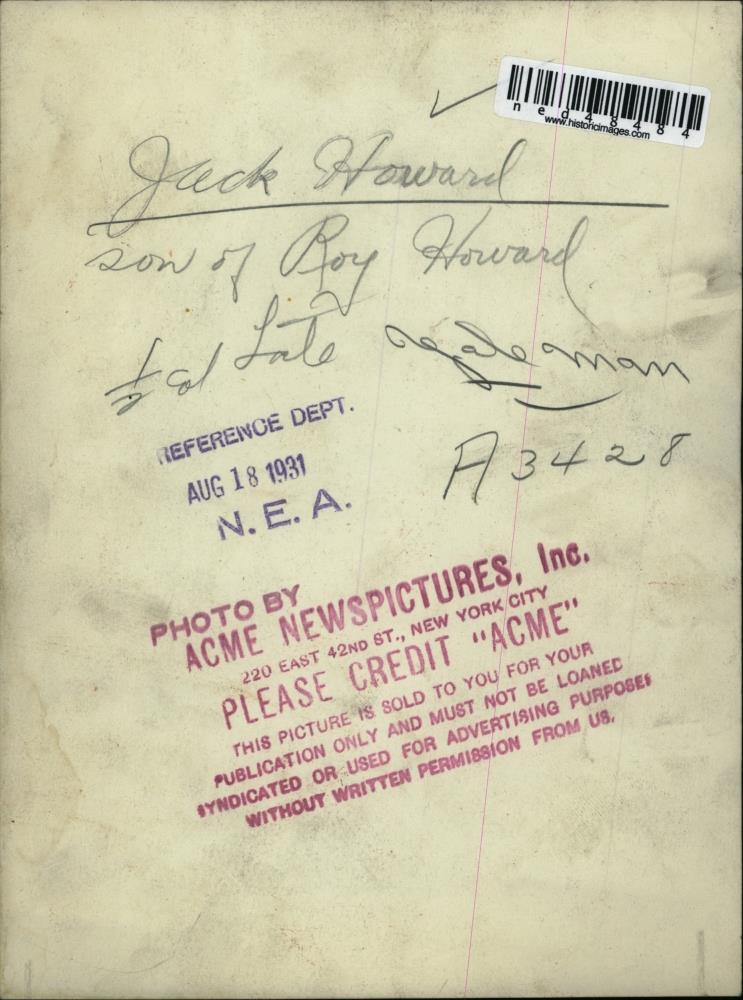 ned48484
www.historicimages.com
Jack Howard
son of Roy Howard
1/2 col Late
A3428
REFERENCE DEPT.
AUG 18 1931
N. E. A.
PHOTO BY
ACME NEWSPICTURES, Inc.
220 EAST 42ND ST., NEW YORK CITY
PLEASE CREDIT "ACME"
THIS PICTURE IS SOLD TO YOU FOR YOUR
PUBLICATION ONLY AND MUST NOT BE LOANED
SYNDICATED OR USED FOR ADVERTISING PURPOSES
WITHOUT WRITTEN PERMISSION FROM US.